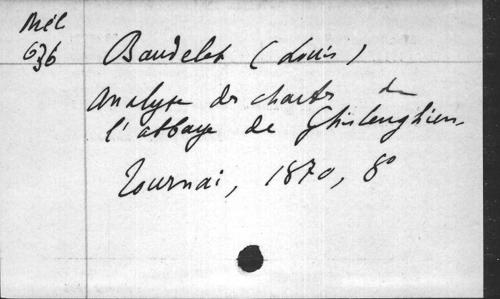 Mél
636
Baudelet (Louis)
Analyse des chartes de
l'abbaye de Ghislenghien.
Tournai, 1870, 8°